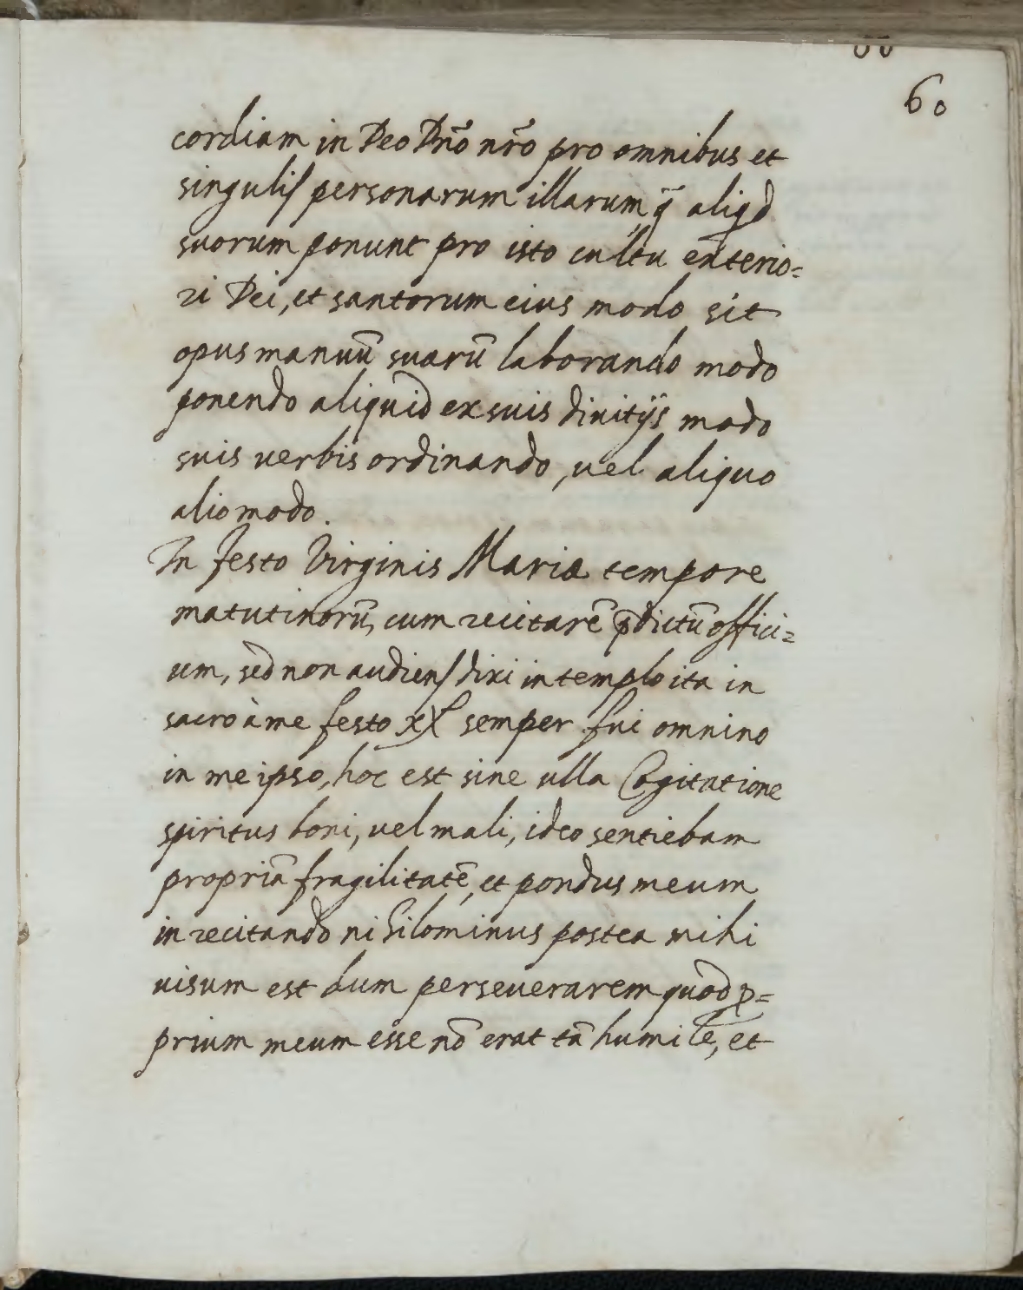 60
cordiam in Deo Dño nr̃o pro omnibus et
singulis personarum illarum q̃ aliqd
suorum ponunt pro isto cultu exterio=
ri Dei, et santorum eius modo sit
opus manuũ suarũ laborando modo
ponendo aliquid ex suis diuitijs modo
suis verbis ordinando, uel aliquo
alio modo.
In festo Virginis Mariæ tempore
matutinorũ, cum recitarẽ p̃dictũ offici=
um, sed non audiens dixi in templo ita in
sacro à me festo semper fui omnino
in me ipso, hoc est sine ulla Cogitatione
spiritus boni, uel mali, ideo sentiebam
propriã fragilitatẽ, et pondus meum
in recitando nihilominus postea mihi
uisum est dum perseuerarem quod p=
prium meum esse nõ erat tã humile, et